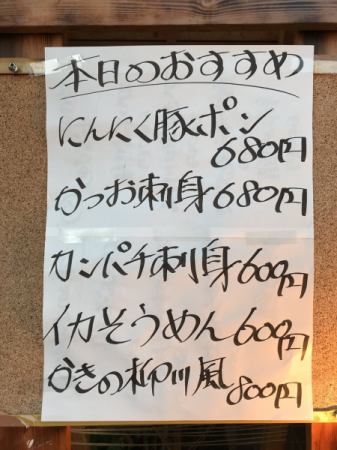 本日のおすすめ
にんにく豚ポン
680円
かつお刺身680円
カンパチ刺身600円
イカそうめん600円
かきの柳川風800円